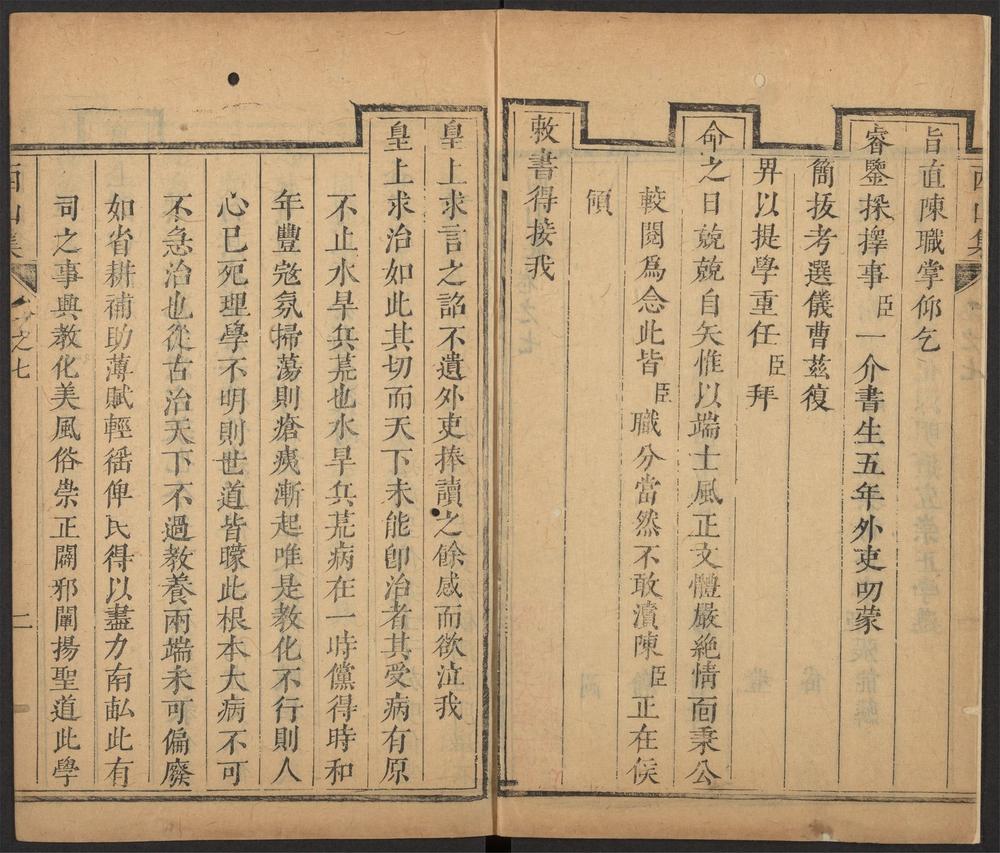 西山集
旨直陳職掌仰乞
睿鑒採擇事臣一介書生五年外吏叨蒙
簡拔考選儀曹茲復
畀以提學重任臣拜
命之日兢兢自矢惟以端士風正文體嚴絶情面秉公
較閱爲念此皆臣職分當然不敢瀆陳臣正在俟
領
敕書得接我
皇上求言之詔不遺外吏捧讀之餘感而欲泣我
皇上求治如此其切而天下未能卽治者其受病有原
不止水旱兵荒也水旱兵荒病在一時儻得時和
年豐寇氛掃蕩則瘡痍漸起唯是教化不行則人
心已死理學不明則世道皆矇此根本大病不可
不急治也從古治天下不過教養兩端未可偏廢
如省耕補助薄賦輕徭俾民得以盡力南畝此有
司之事興教化美風俗崇正闢邪闡揚聖道此學
西山集 卷之七 二